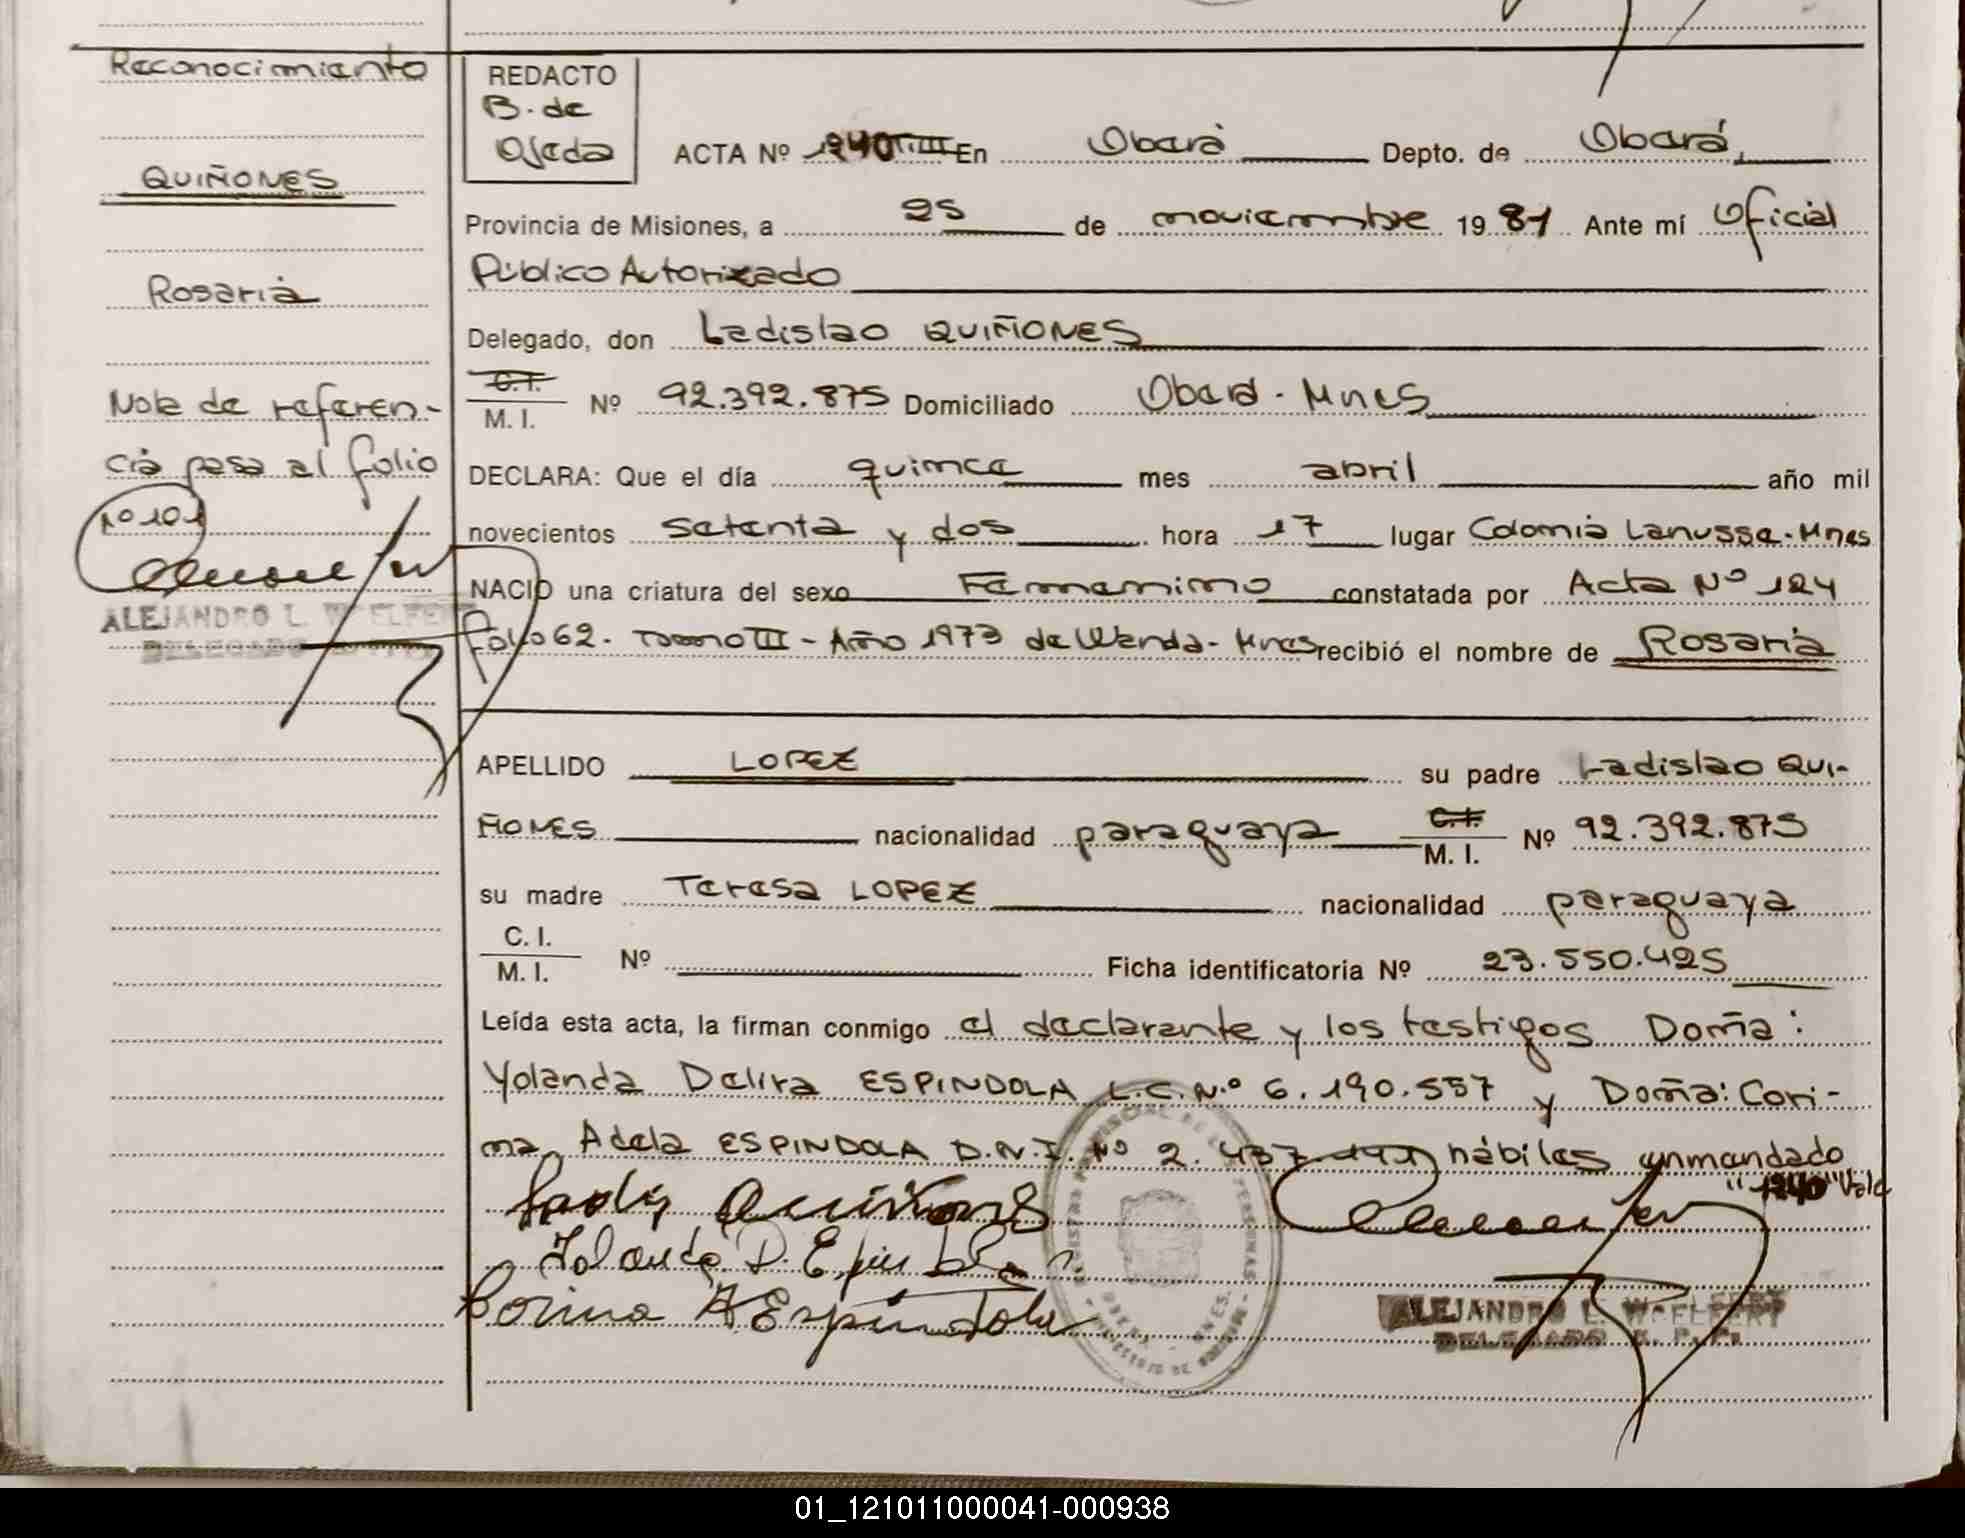 Reconocimiento
QUIÑONES
Rosaria
Nota de referen-
cia pasa al folio
Nº 101
ALEJANDRO L. WOELFERT
DELEGADO
REDACTO
B. de
Ojeda
ACTA Nº 1240 T.III En Oberá Depto. de Oberá,
Provincia de Misiones, a 25 de noviembre 1981 Ante mí Oficial
Público Autorizado
Delegado, don Ladislao QUIÑONES
C.I.
M. I. Nº 92.392.875 Domiciliado Oberá - Mnes
DECLARA: Que el día quince mes abril año mil
novecientos setenta y dos hora 17 lugar Colonia Lanusse - Mnes
NACIO una criatura del sexo Femenino constatada por Acta Nº 124
folio 62 - Tomo III - Año 1973 de Wanda - Mnes recibió el nombre de Rosaria
APELLIDO LOPEZ su padre Ladislao QUI-
ÑONES nacionalidad paraguaya C.I. M. I. Nº 92.392.875
su madre Teresa LOPEZ nacionalidad paraguaya
C. I.
M. I. Nº Ficha identificatoria Nº 23.550.425
Leída esta acta, la firman conmigo el declarante y los testigos Doña:
Yolanda Delira ESPINDOLA L.C.N.º 6.190.557 y Doña: Cori-
na Adela ESPINDOLA D.N.I. Nº 2.437 hábiles enmendado
"1240" Vale
Ladis Quiñones
Yolanda D. Espindola
Corina A Espíndola
ALEJANDRO L. WOELFERT
DELEGADO R. P. P.
01_121011000041-000938